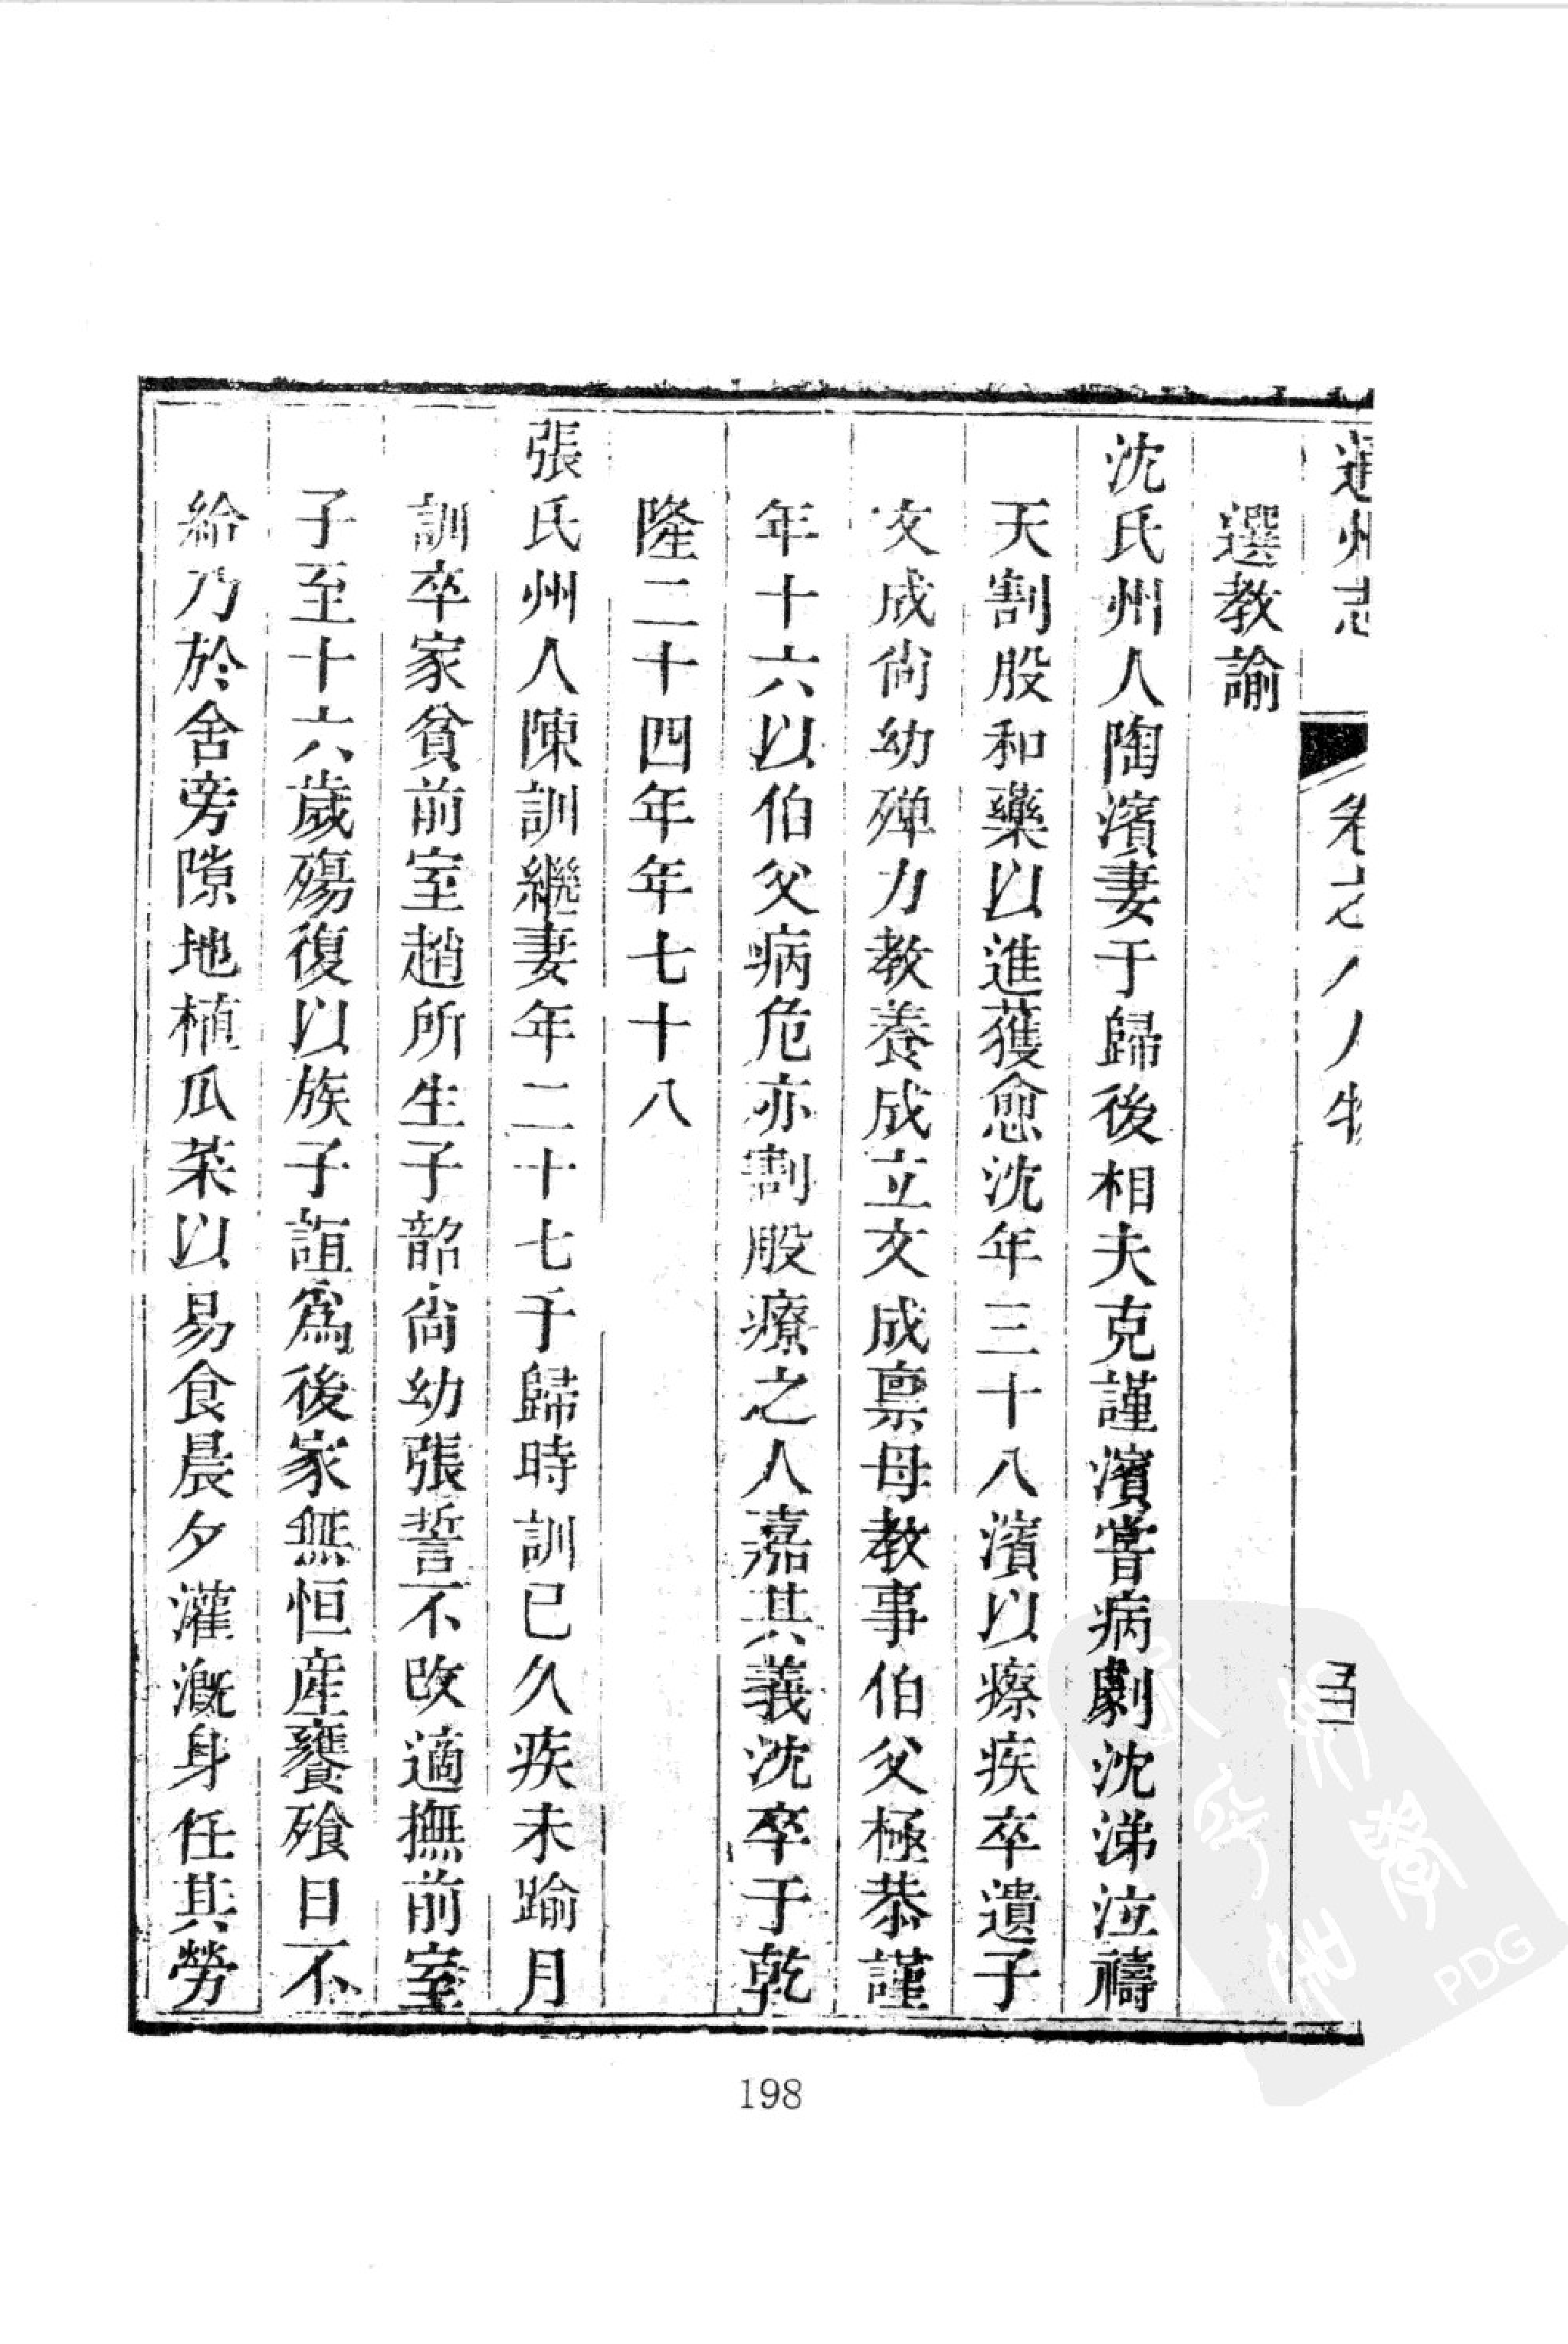 通州志 卷之八人物 五
選教諭
沈氏州人陶濱妻于歸後相夫克謹濱嘗病劇沈涕泣禱
天割股和藥以進獲愈沈年三十八濱以瘵疾卒遺子
文成尙幼殫力教養成立文成禀母教事伯父極恭謹
年十六以伯父病危亦割股療之人嘉其義沈卒于乾
隆二十四年年七十八
張氏州人陳訓繼妻年二十七于歸時訓已久疾未踰月
訓卒家貧前室趙所生子韶尙幼張誓不改適撫前室
子至十六歲殤復以族子誼爲後家無恒産饔飱日不
給乃於舍旁隙地植瓜菜以易食晨夕灌溉身任其勞
198
PDG